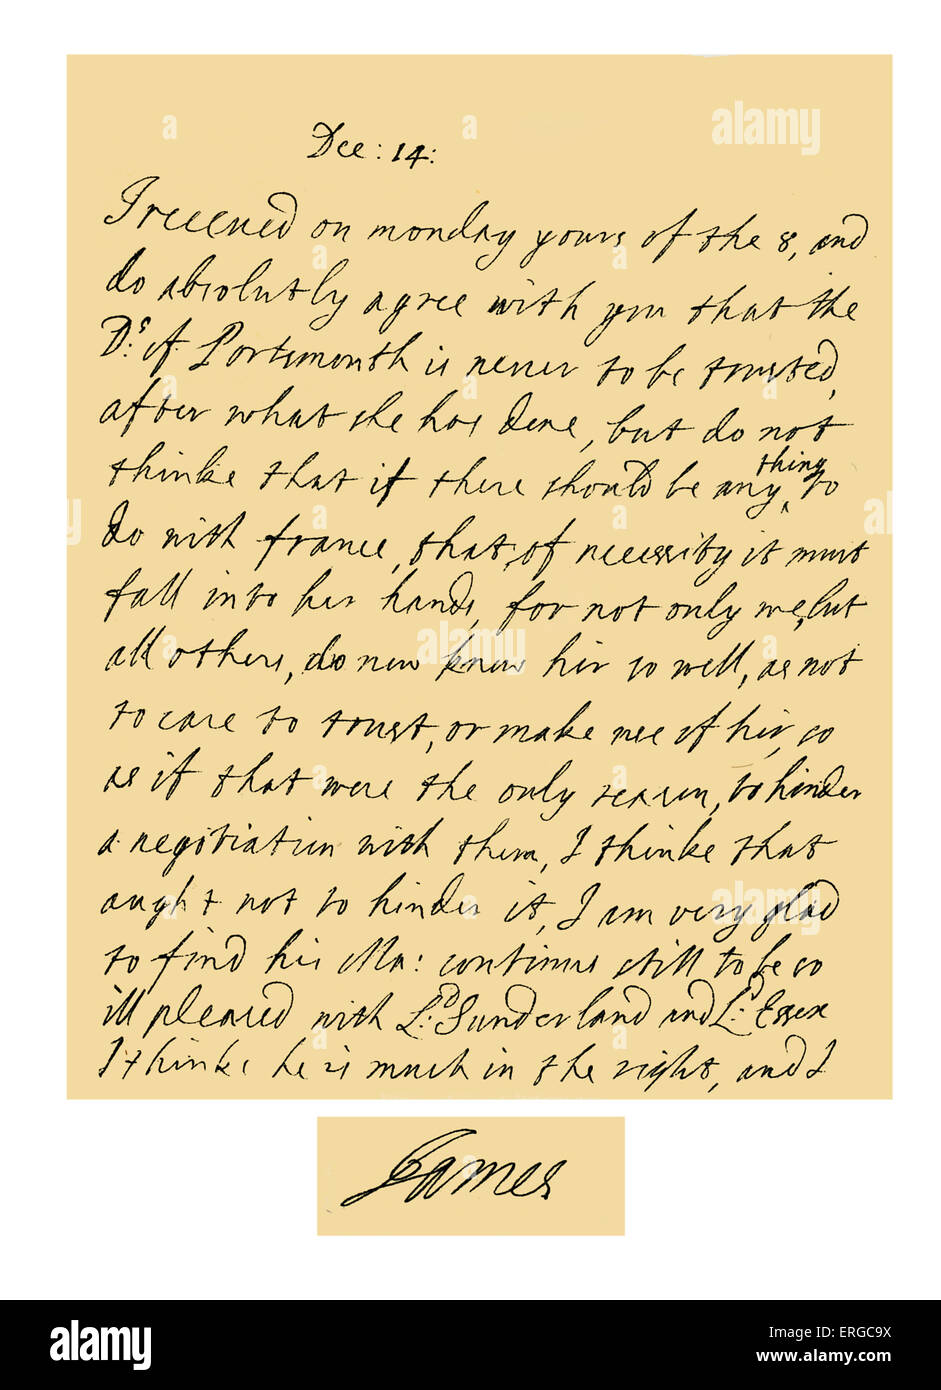 Dec: 14:
I receued on monday yours of the 8, and
do absolutly agree with you that the
Ds. of Portsmouth is neuer to be trusted,
after what she has done, but do not
thinke that if there should be any thing to
do with france, that of necessity it must
fall into her hands, for not only we, but
all others, do now know her so well, as not
to care to trust, or make use of her, so
as if that were the only reason, to hinder
a negotiation with them, I thinke that
aught not to hinder it, I am very glad
to find his Ma: continus still to be so
ill pleased with Ld. Sunderland and Ld. Essex
I thinke he is much in the right, and I
James
alamy
Image ID: ERGC9X
www.alamy.com